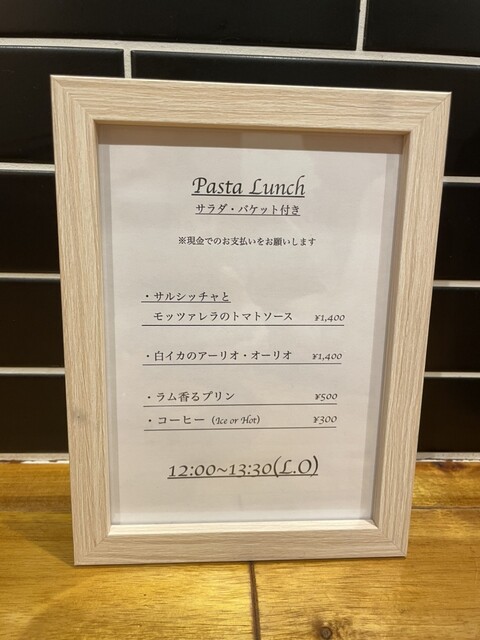 Pasta Lunch
サラダ・バケット付き
※現金でのお支払いをお願いします
・サルシッチャと
モッツァレラのトマトソース ¥1,400
・白イカのアーリオ・オーリオ ¥1,400
・ラム香るプリン ¥500
・コーヒー（Ice or Hot） ¥300
12:00~13:30(L.O)